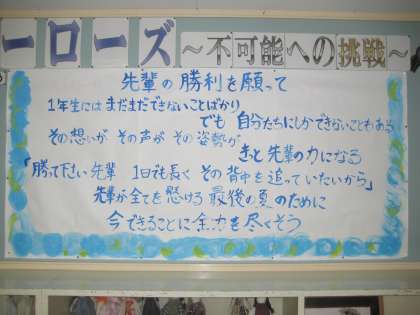 ーローズ ～不可能への挑戦～
先輩の勝利を願って
1年生にはまだまだできないことばかり
でも 自分たちにしかできないこともある
その想いが その声が その姿勢が
きっと先輩の力になる
「勝って下さい先輩 1日でも長く その背中を追っていたいから」
先輩が全てを懸ける 最後の夏のために
今できることに全力を尽くそう